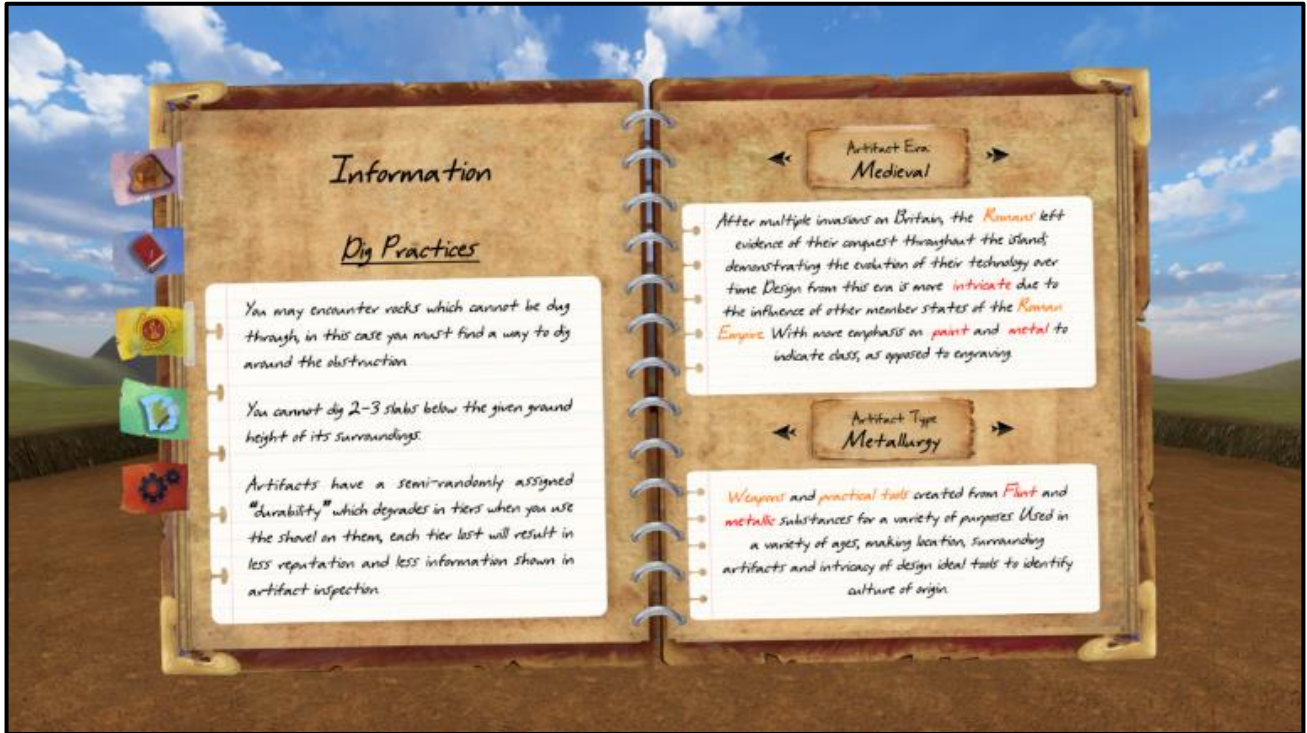 Information
Dig Practices
You may encounter rocks which cannot be dug
through, in this case you must find a way to dig
around the obstruction
You cannot dig 2-3 slabs below the given ground
height of its surroundings.
Artifacts have a semi-randomly assigned
"durability" which degrades in tiers when you use
the shovel on them, each tier lost will result in
less reputation and less information shown in
artifact inspection
Artifact Era:
Medieval
After multiple invasions on Britain, the Romans left
evidence of their conquest throughout the island;
demonstrating the evolution of their technology over
time Design from this era is more intricate due to
the influence of other member states of the Roman
Empire. With more emphasis on paint and metal to
indicate class, as opposed to engraving.
Artifact Type
Metallurgy
Weapons and practical tools created from Flint and
metallic substances for a variety of purposes. Used in
a variety of ages, making location, surrounding
artifacts and intricacy of design ideal tools to identify
culture of origin